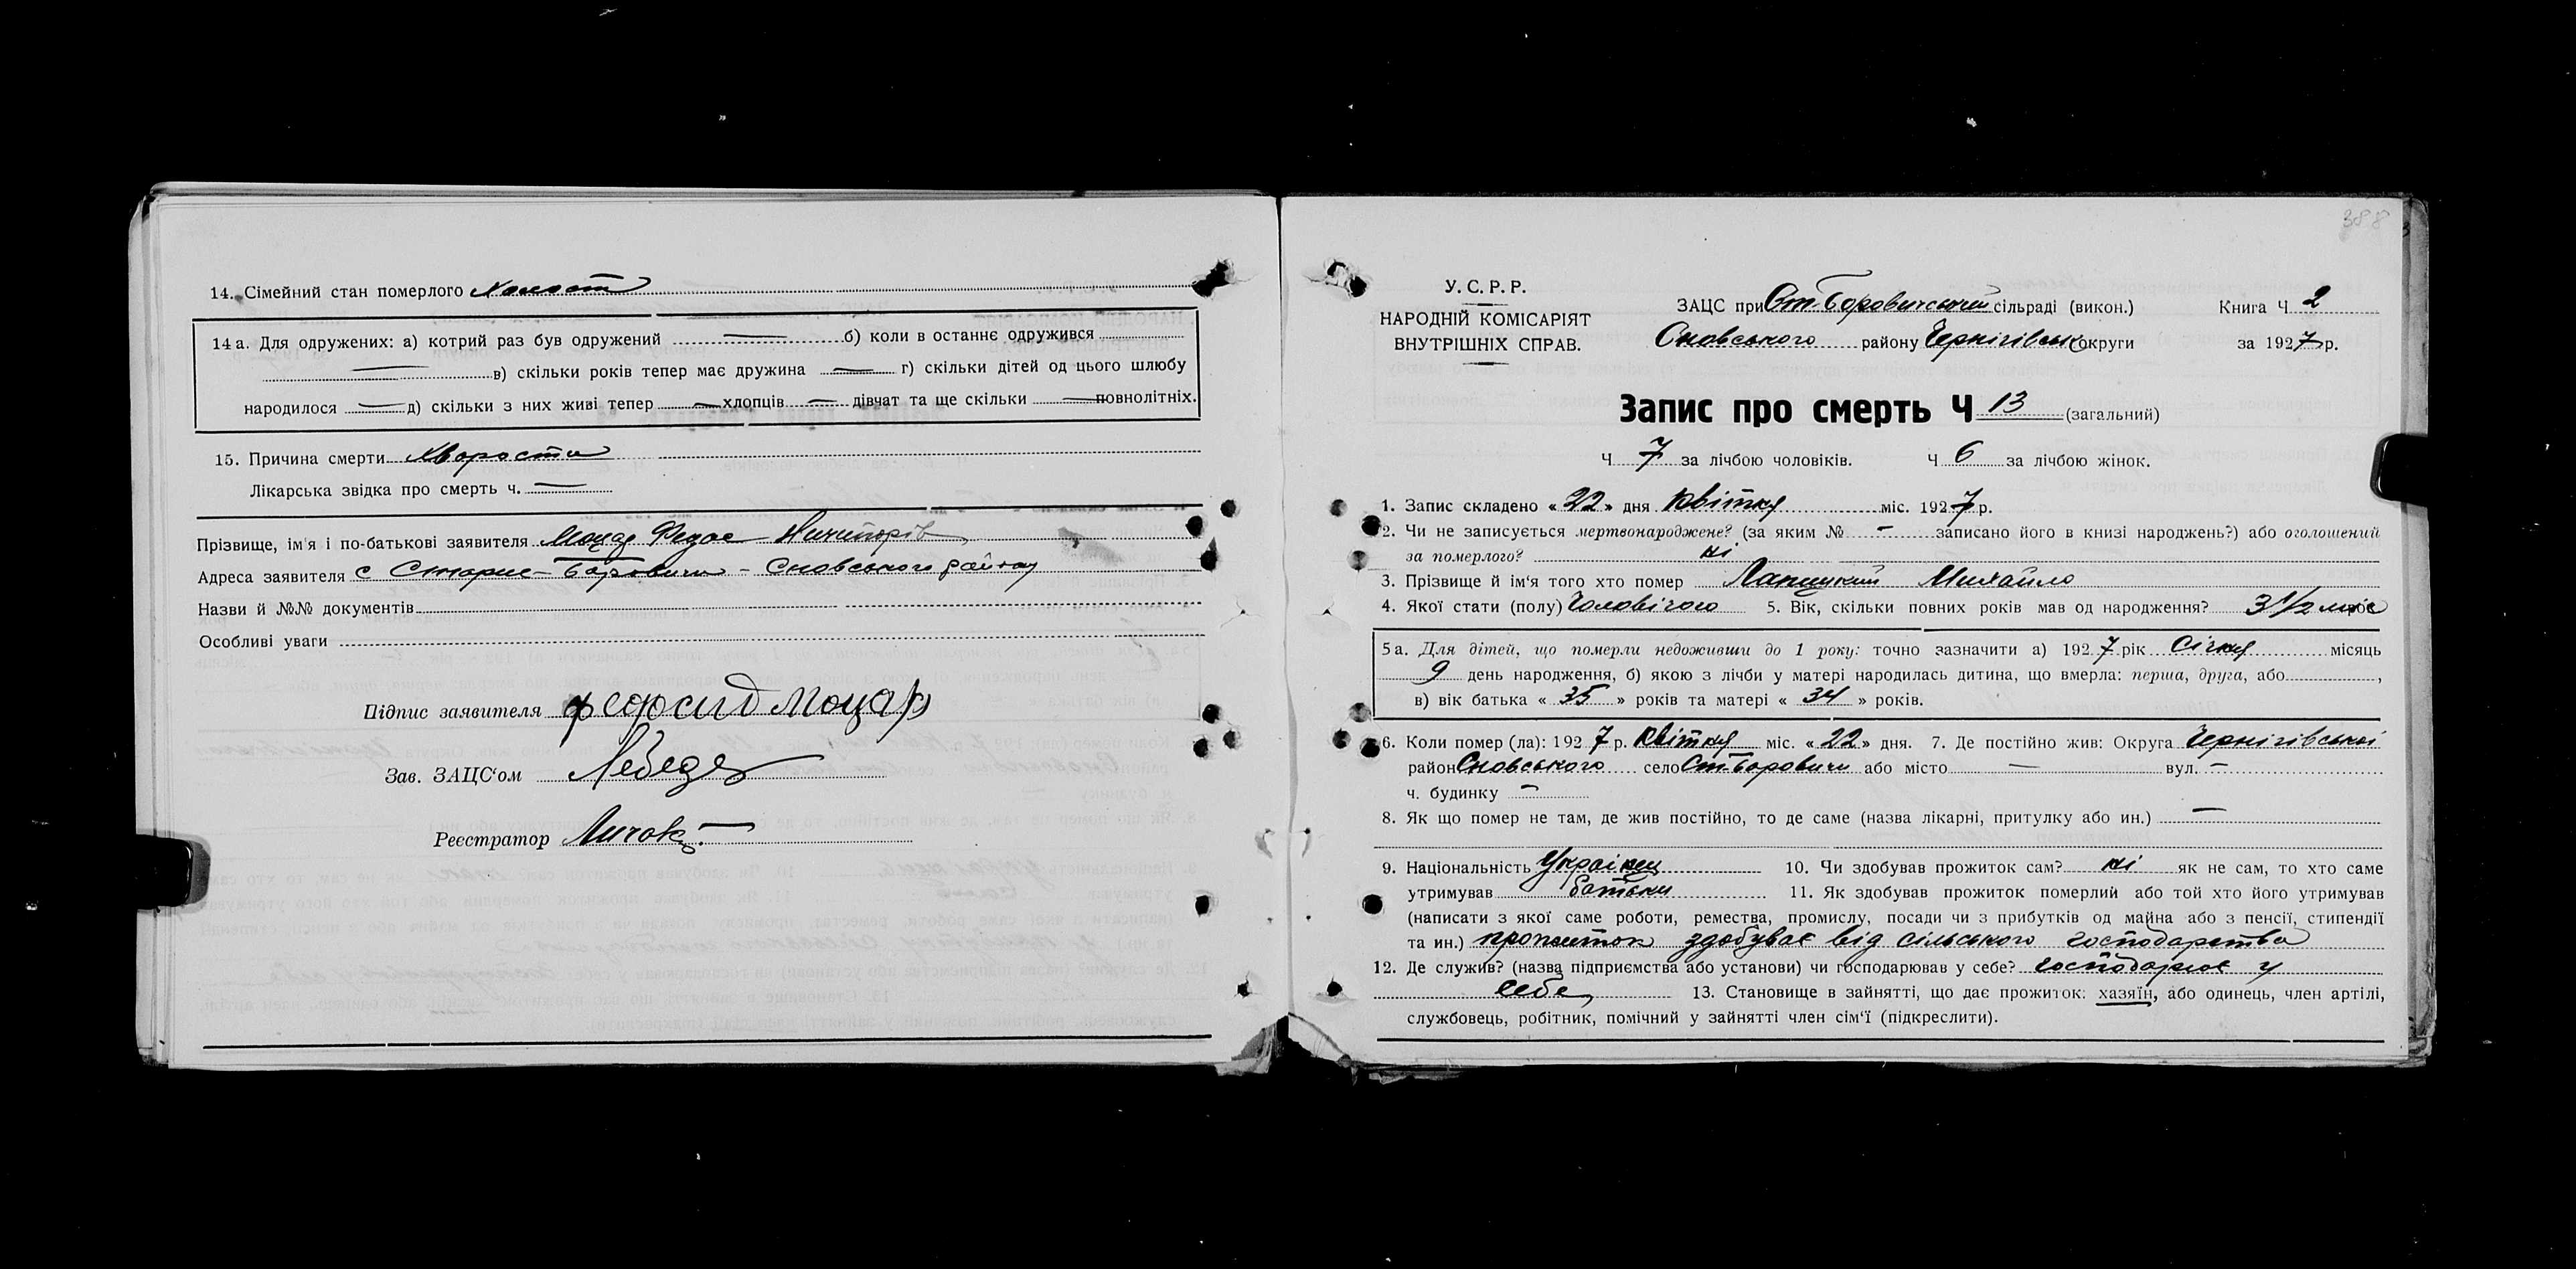 14. Сімейний стан померлого Холост
14а. Для одружених: а) котрий раз був одружений — б) коли в останнє одружився
— в) скільки років тепер має дружина — г) скільки дітей од цього шлюбу
народилося — д) скільки з них живі тепер — хлопців — дівчат та ще скільки — повнолітніх.
15. Причина смерти Хвороста
Лікарська звідка про смерть ч. —
Прізвище, ім'я і по-батькові заявителя Моцар Федос Ничипорів
Адреса заявителя с Старие-Боровичи - Сновського району
Назви й №№ документів
Особливі уваги
Підпис заявителя Моцар
Зав. ЗАЦС'ом Лебедев
Реєстратор
388
У. С. Р. Р.
НАРОДНІЙ КОМІСАРІЯТ
ВНУТРІШНІХ СПРАВ.
ЗАЦС при Ст-Боровичський сільраді (викон.)
Сновського району Чернігівськ округи
Книга Ч 2
за 1927 р.
Запис про смерть Ч 13 (загальний)
Ч 7 за лічбою чоловіків. Ч 6 за лічбою жінок.
1. Запис складено «22» дня Квітня міс. 1927 р.
2. Чи не записується мертвонароджене? (за яким № - записано його в книзі народжень?) або оголошений
за померлого? ні
3. Прізвище й ім'я того хто помер Лапицкий Михайло
4. Якої стати (полу) Чоловічого 5. Вік, скільки повних років мав од народження? 3 1/2 міс
5а. Для дітей, що померли недоживши до 1 року: точно зазначити а) 1927 рік Січня місяць
9 день народження, б) якою з лічби у матері народилась дитина, що вмерла: перша, друга, або ,
в) вік батька «35» років та матері «34» років.
6. Коли помер (ла): 1927 р. Квітня міс. «22» дня. 7. Де постійно жив: Округа Чернігівської
район Сновського село Ст-Боровичи або місто — вул. —
ч. будинку —
8. Як що помер не там, де жив постійно, то де саме (назва лікарні, притулку або ин.) —
9. Національність Українец 10. Чи здобував прожиток сам? ні як не сам, то хто саме
утримував батьки 11. Як здобував прожиток померлий або той хто його утримував
(написати з якої саме роботи, ремества, промислу, посади чи з прибутків од майна або з пенсії, стипендії
та ин.) прожиток здобуває від сільського господарства
12. Де служив? (назва підприємства або установи) чи господарював у себе? господарює у
себе 13. Становище в зайнятті, що дає прожиток: хазяїн, або одинець, член артілі,
службовець, робітник, помічний у зайнятті член сім'ї (підкреслити).